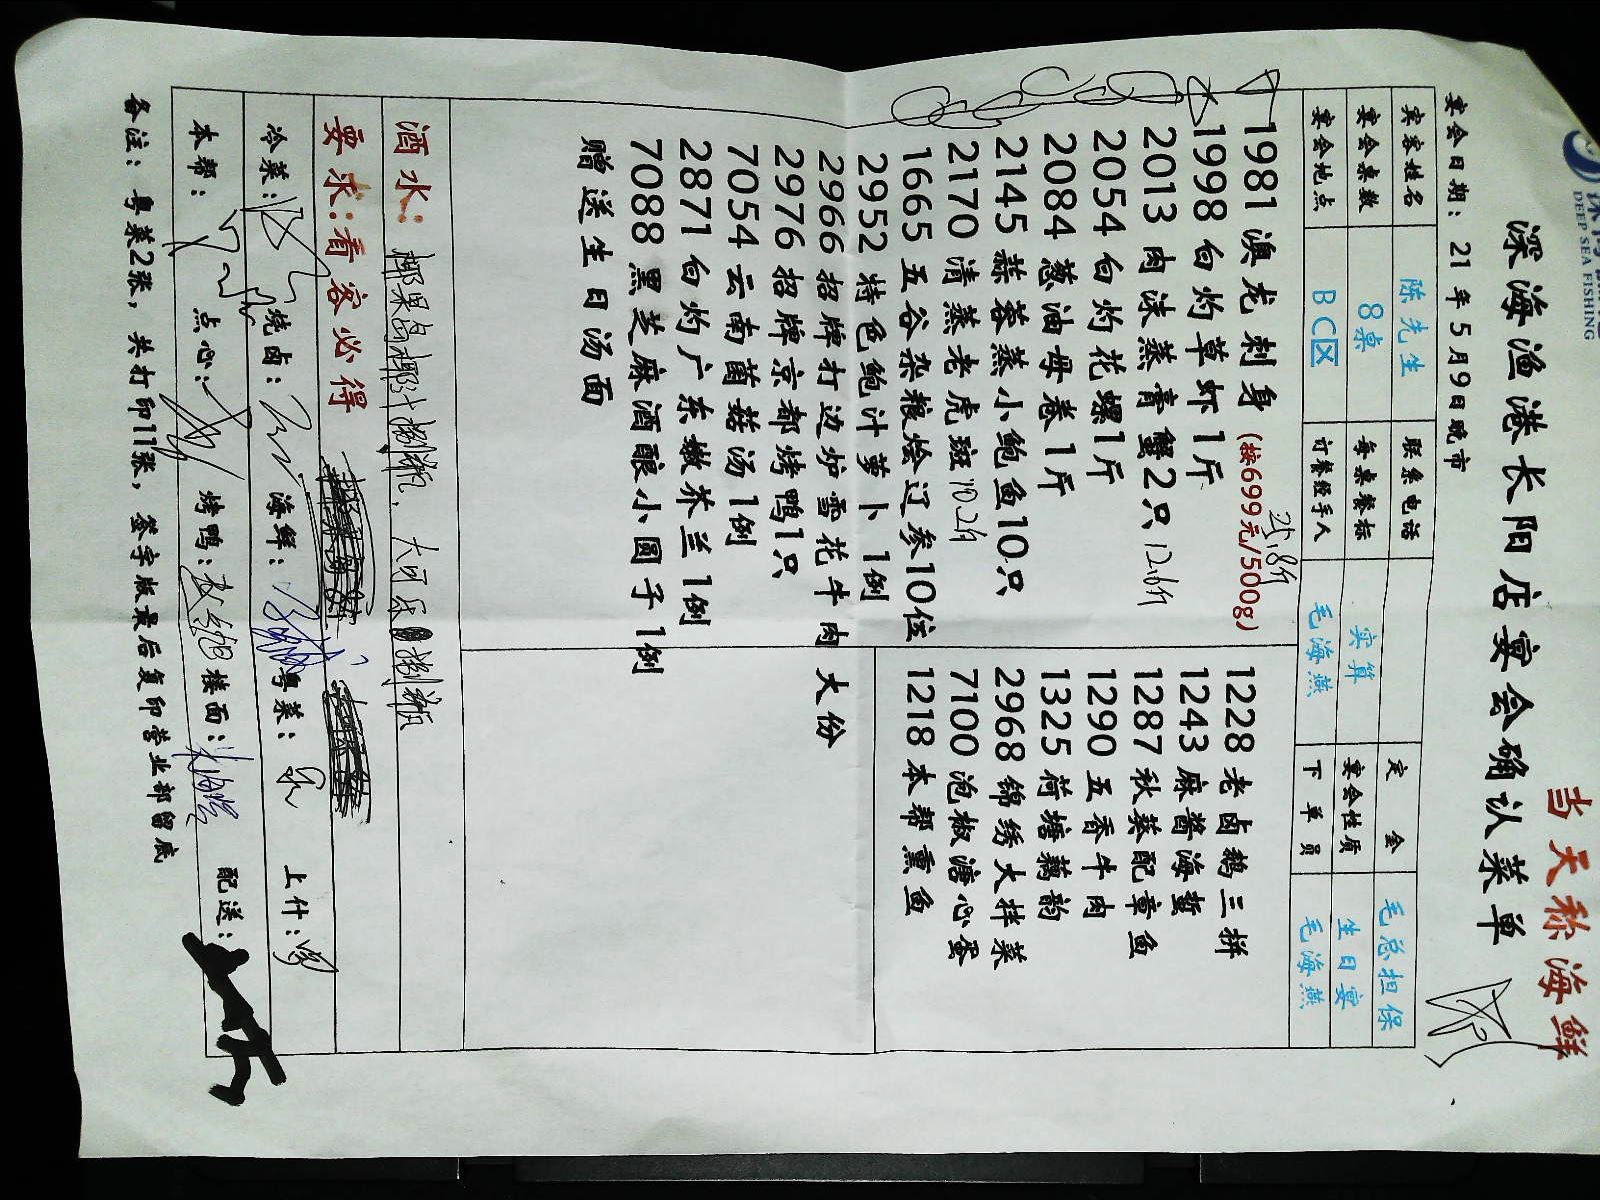 DEEP SEA FISHING
当天称海鲜
深海渔港长阳店宴会确认菜单
宴会日期：21年5月9日晚市
宾客姓名 陈先生 联系电话 定金 毛总担保
宴会桌数 8桌 每桌餐标 实算 宴会性质 生日宴
宴会地点 BC区 订餐经手人 毛海燕 下单员 毛海燕
1981澳龙刺身(按699元/500g)
1998白灼草虾1斤
2013肉沫蒸膏蟹2只
2054白灼花螺1斤
2084葱油毋卷1斤
2145蒜蓉蒸小鲍鱼10只
2170清蒸老虎斑
1665五谷杂粮烩辽参10位
2952特色鲍汁萝卜1例
2966招牌打边炉雪花牛肉 大份
2976招牌京都烤鸭1只
7054云南菌菇汤1例
2871白灼广东嫩芥兰1例
7088黑芝麻酒酿小圆子1例
赠送生日汤面
1228老卤鹅三拼
1243麻酱海蜇
1287秋葵配章鱼
1290五香牛肉
1325荷塘藕韵
2968锦绣大拌菜
7100泡椒溏心蛋
1218本帮熏鱼
酒水：椰果岛椰汁捌瓶，大可乐捌瓶
要求：看客必得
冷菜： 烧卤： 海鲜： 粤菜： 上什：
本帮： 点心： 烤鸭： 楼面： 配送：
备注：粤菜2张，共打印11张，签字版最后复印营业部留底